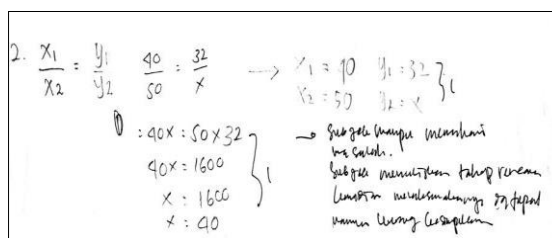 2. x1/x2 = y1/y2 40/50 = 32/x → x1 = 40 y1 = 32
x2 = 50 y2 = x } 1
: 40x = 50 x 32
40x = 1600
x = 1600
x = 40
} 1
→ Subjek mampu memahami
masalah.
Subjek menuliskan tahap rencana
kemudian melaksanakannya dg tepat
namun kurang